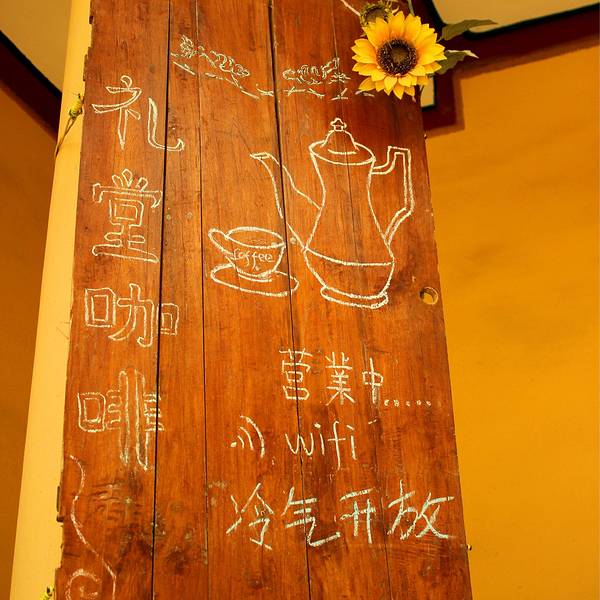 礼堂咖啡
coffee
营業中......
wifi
冷气开放